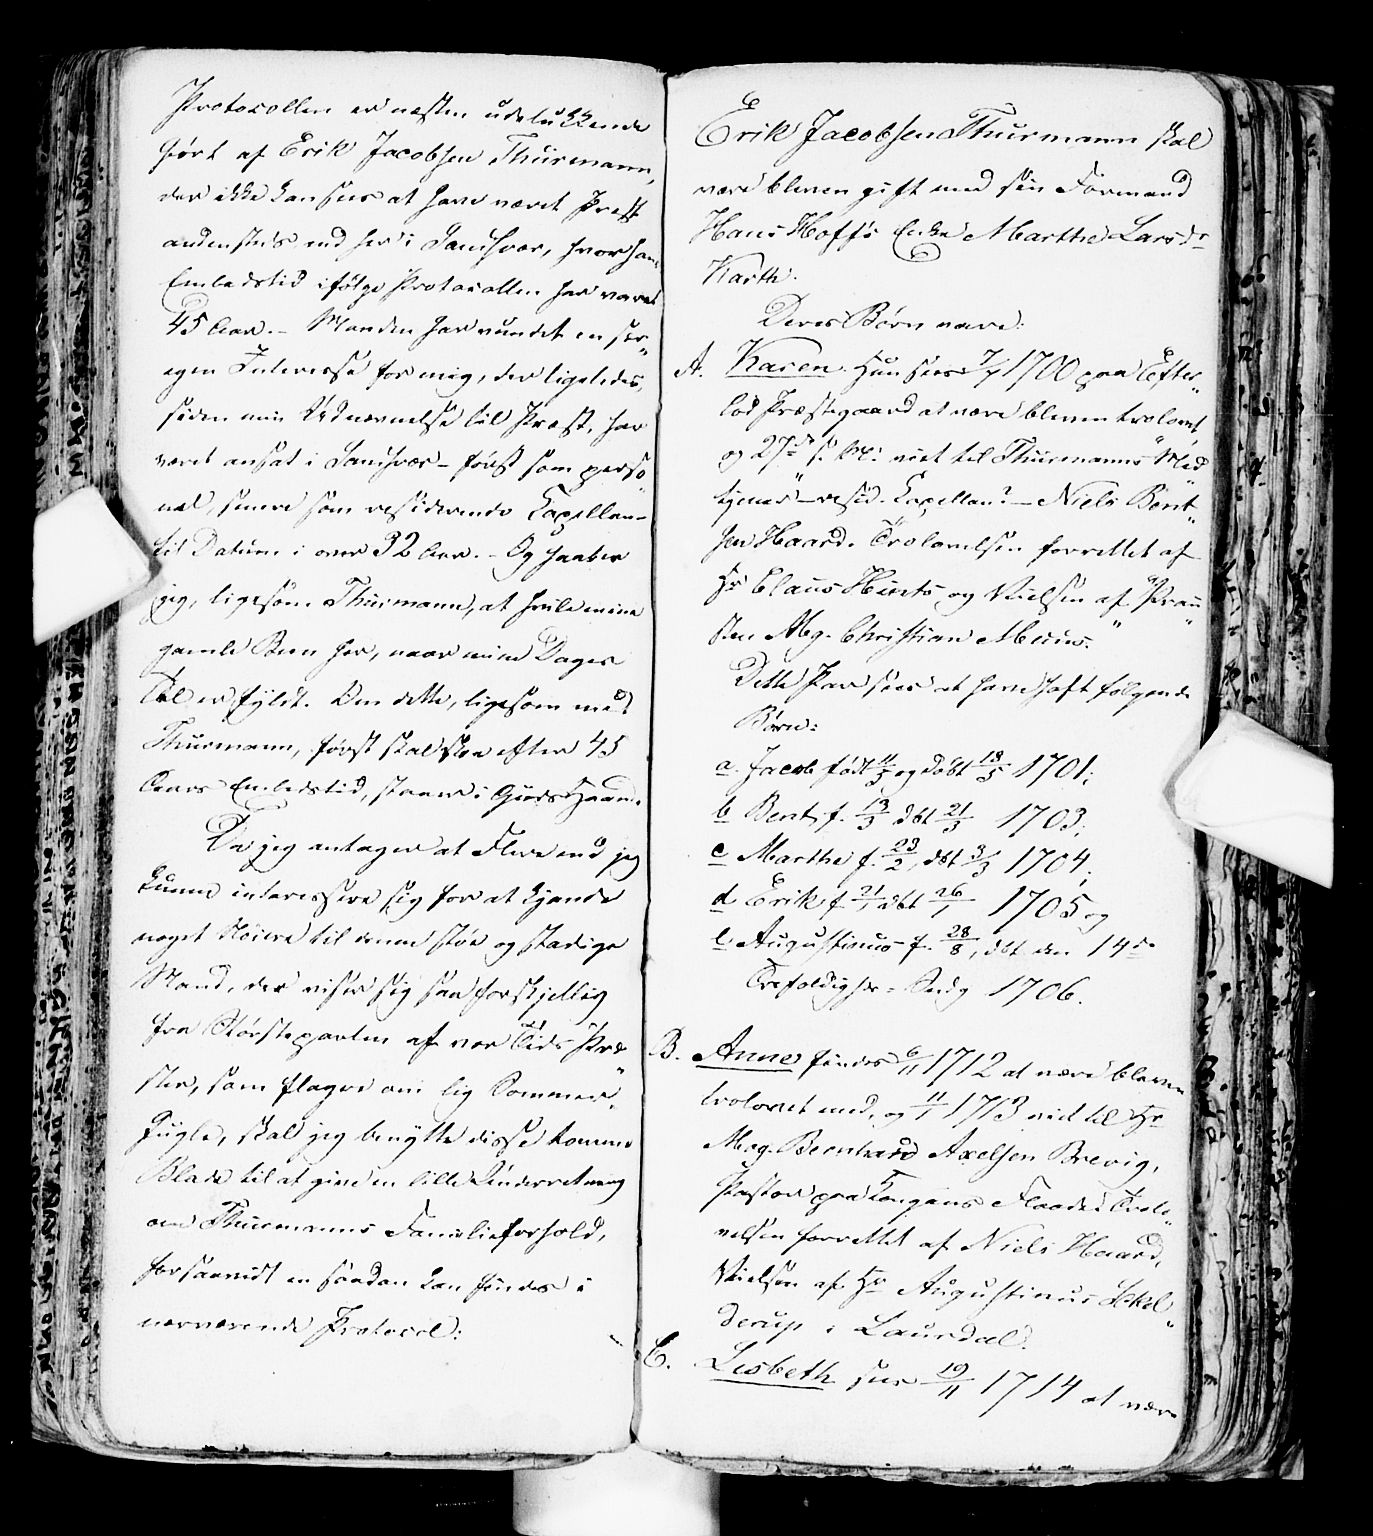 Protocollen er næsten udelukkende
ført af Erik Jacobsen Thurmann,
der ikke kan sees at have været Præst
andenstæds end her i Sandsvær, hvor hans
Embedstid ifølge Protocollen har varet
45 Aar. – Manden har vundet en sær„
egen Interesse for mig, der ligeledes,
siden min Udnævnelse til Præst, har
været ansat i Sandsvær – først som perso„
nel, senere som residerende Capellan –
til Datum i over 32 Aar. – Og haaber
jeg, ligesom Thurmann, at hvile mine
gamle Been her, naar mine Dages
Tal er fyldt. Om dette, ligesom med
Thurmann, først skal skee efter 45
Aars Embedstid, staaer i Guds Haand.
Da jeg antager at Flere end jeg
kunne interessere sig for at kjende
noget Nøiere til denne støe og stadige
Mand, der viser sig saa forskjellig
fra Størsteparten af vor Tids Præ„
ster, som flagre om lig Sommer„
fugle, skal jeg benytte disse tomme
Blade til at give en lille Underretning
om Thurmanns Familieforhold,
forsaavidt en saadan kan findes i
nærværende Protocol:
Erik Jacobsen Thurmann skal
være bleven gift med sin Formand
Hans Hoffs Enke Marthe Larsdr
Karth.
Deres Børn vare:
A. Karen. Hun sees 7/1 1700 paa Efte„
lød Præstegaard at være bleven trolovet,
og 27de s. M. viet til Thurmanns "Med„
tjener" – resid. Capellan? – Niels Bent„
sen Haard. Trolovelsen forrettet af
Hr Claus Hirts og Vielsen af "Prau„
sten Mag. Christian Meiers."
Dette Par sees at have haft følgende
Børn:
a. Jacob født 11/5 og døbt 18/5 1701;
b Bent f. 13/3 dbt 21/3 1703;
c Marthe f. 23/2, dbt 3/3 1704;
d Erik f 21/1 dbt 26/1 1705 og
e Augustinus f. 28/8, dbt den 14de
Trefoldighds = Sndg 1706.
B. Anne findes 6/11 1712 at være bleven
trolovet med, og 11/1 1713 viet til Hr
Mag. Bernhard Axelsen Brevig,
Pastor paa Kongens Flaade: Trolo„
velsen forrettet af Niels Haard,
Vielsen af Hr Augustinus Skel„
derup i Laurdal.
C. Lisbeth sees 19/11 1714 at være